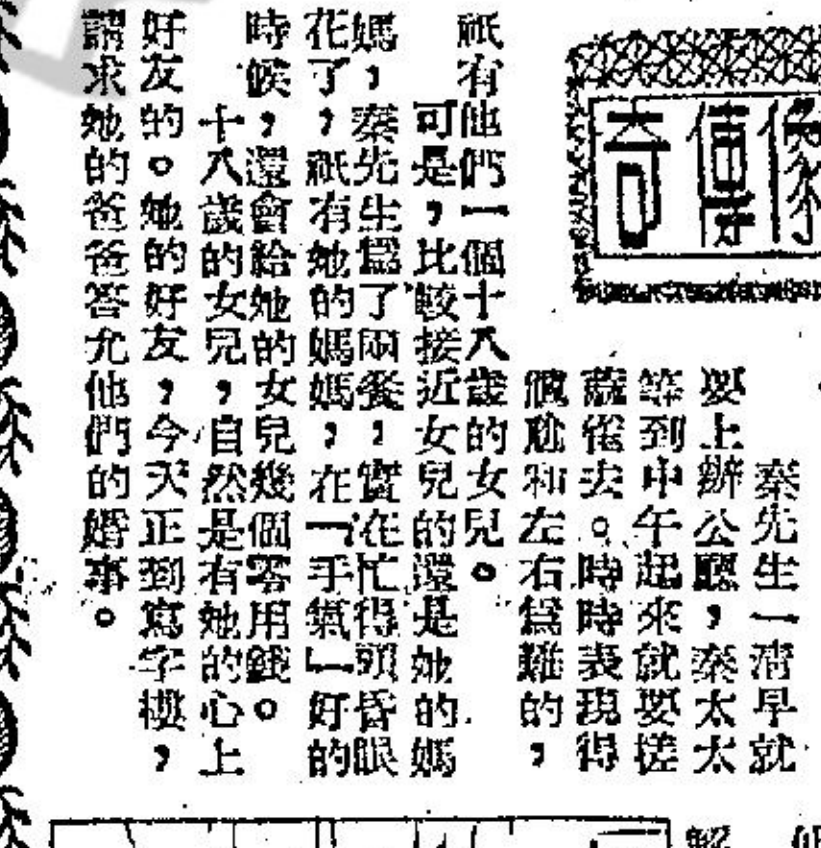 像傳奇
秦先生一清早就
要上辦公廳，秦太太
等到中午起來就要搓
蔴雀去。時時表現得
尷尬和左右爲難的，
祇有他們一個十八歲的女兒。
可是，比較接近女兒的還是她的媽
媽，秦先生爲了兩餐，實在忙得頭昏眼
花了，祇有她的媽媽，在「手氣」好的
時候，還會給她的女兒幾個零用錢。
十八歲的女兒，自然是有她的心上
好友的。她的好友，今天正到寫字樓，
請求她的爸爸答允他們的婚事。